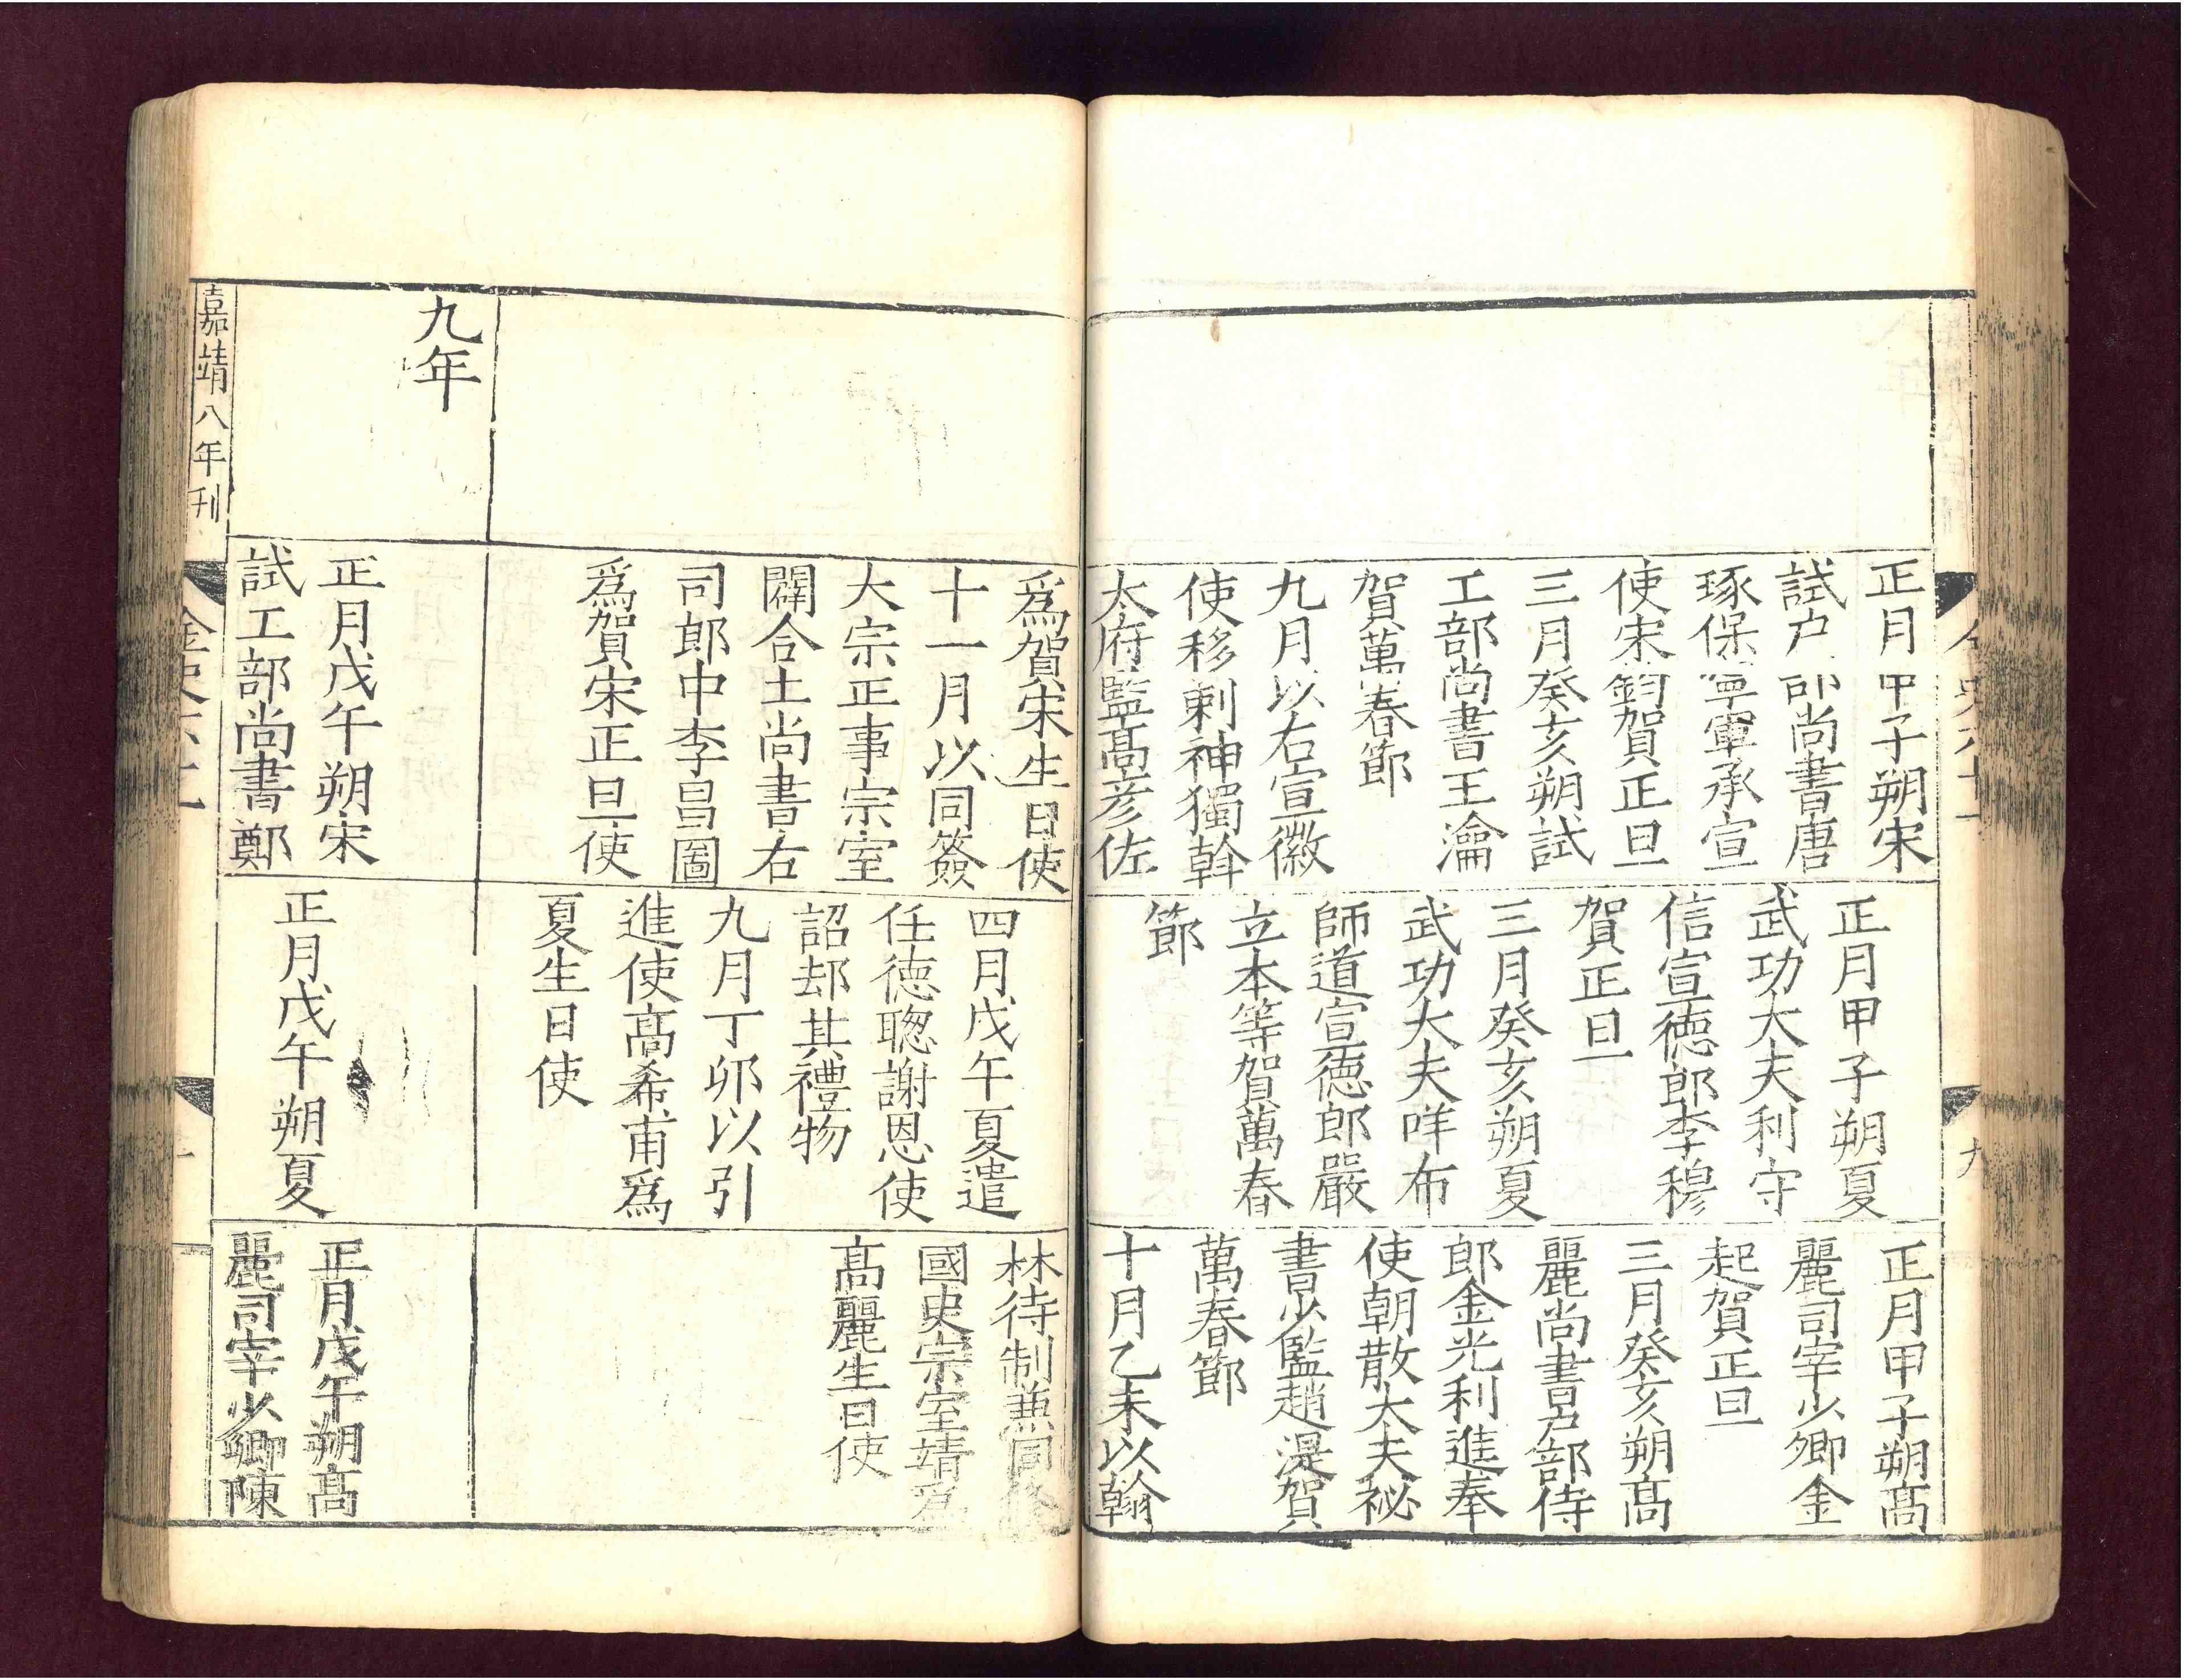 正月甲子朔宋
試户部尚書唐
琢保寧軍承宣
使宋鈞賀正旦
三月癸亥朔試
工部尚書王瀹
賀萬春節
九月以右宣徽
使移剌神獨斡
太府監高彦佐
正月甲子朔夏
武功大夫利守
信宣德郎李穆
賀正旦
三月癸亥朔夏
武功大夫咩布
師道宣德郎嚴
立本等賀萬春
節
正月甲子朔髙
麗司宰少卿金
起賀正旦
三月癸亥朔髙
麗尚書户部侍
郎金光利進奉
使朝散大夫祕
書少監趙湜賀
萬春節
十月乙未以翰
九
爲賀宋生日使
十一月以同簽
大宗正事宗室
闢合土尚書右
司郎中李昌圖
爲賀宋正旦使
四月戊午夏遣
任德聰謝恩使
詔却其禮物
九月丁卯以引
進使髙希甫爲
夏生日使
林待制兼同修
國史宗室靖爲
髙麗生日使
九年
正月戊午朔宋
試工部尚書鄭
正月戊午朔夏
正月戊午朔髙
麗司宰少卿陳
嘉靖八年刊
金史六十一